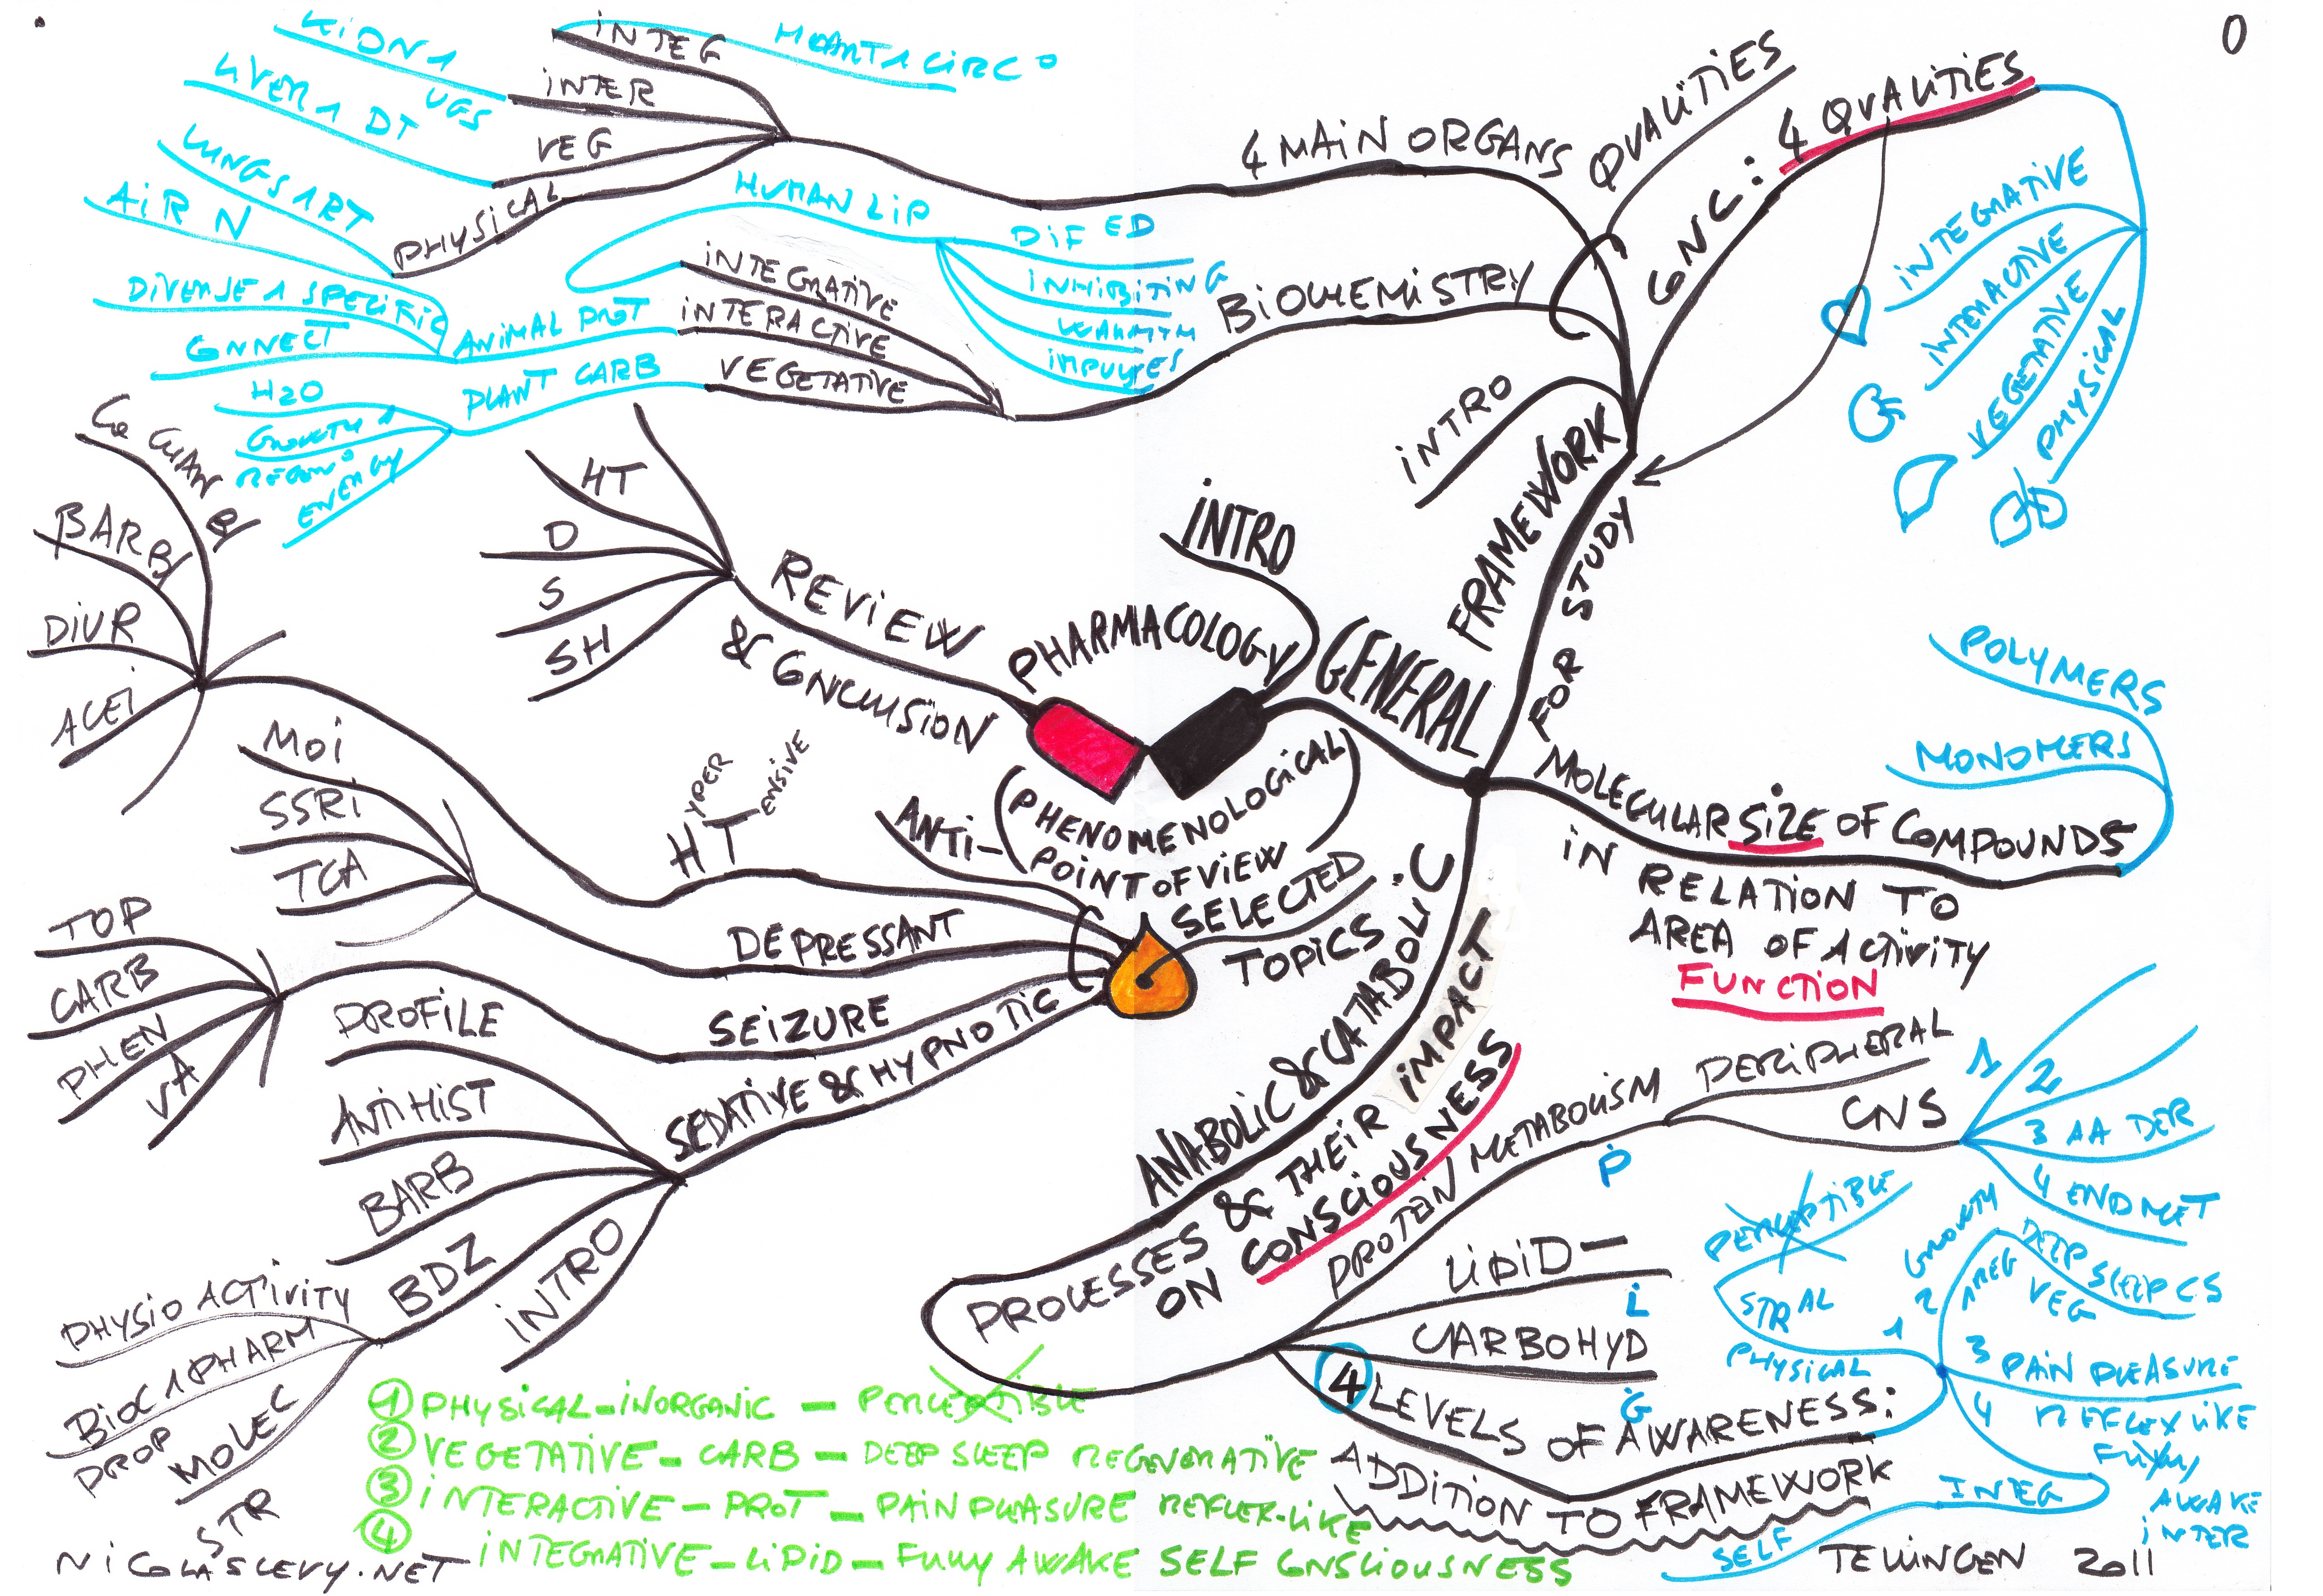 0
INTEG
INTER
VEG
PHYSICAL
LIVER 1 DT
UGS
LUNGS 1 RT
AIR N
4 MAIN ORGANS
QUALITIES
CONC: 4 QUALITIES
INTEGRATIVE
INTERACTIVE
VEGETATIVE
PHYSICAL
HUMAN LIP
DIF ED
INHIBITING
WARMTH
INTEGRATIVE
INTERACTIVE
VEGETATIVE
BIOCHEMISTRY
DIVERSE 1 SPECIFIC
ANIMAL PROT
CONNECT
PLANT CARB
H2O
GROWTH 1
REGEN
ENERGY
INTRO
FRAMEWORK
FOR STUDY
INTRO
PHARMACOLOGY
GENERAL
(PHENOMENOLOGICAL)
POINT OF VIEW
REVIEW
& CONCLUSION
HT
D
S
SH
BARB
DIUR
ACEI
MOI
SSRI
TCA
TOP
CARB
PHEN
VA
ANTI-
HT
HYPER
TENSIVE
DEPRESSANT
SEIZURE
SEDATIVE & HYPNOTIC
SELECTED
TOPICS
PROFILE
ANTI HIST
BARB
BDZ
INTRO
PHYSIO ACTIVITY
BIOC 1 PHARM
PROP
MOLEC
STR
POLYMERS
MONOMERS
MOLECULAR SIZE OF COMPOUNDS
IN RELATION TO
AREA OF ACTIVITY
FUNCTION
ANABOLIC & CATABOLIC
PROCESSES & THEIR IMPACT
ON CONSCIOUSNESS
PROTEIN METABOLISM
PERIPHERAL
CNS
1
2
3 AA DER
4 END MET
P
LIPID -
L
CARBOHYD
G
4 LEVELS OF AWARENESS:
ADDITION TO FRAMEWORK
PERCEPTIBLE
STR AL
1
PHYSICAL
2
GROWTH
1 REG
DEEP SLEEP CS
VEG
3 PAIN PLEASURE
4 REFLEX LIKE
FULLY
AWAKE
INTER
INTEG
SELF
1 PHYSICAL - INORGANIC - PERCEPTIBLE
2 VEGETATIVE - CARB - DEEP SLEEP REGENERATIVE
3 INTERACTIVE - PROT - PAIN PLEASURE REFLEX-LIKE
4 INTEGRATIVE - LIPID - FULLY AWAKE SELF CONSCIOUSNESS
NICOLASLEVY.NET
TELLINGEN 2011